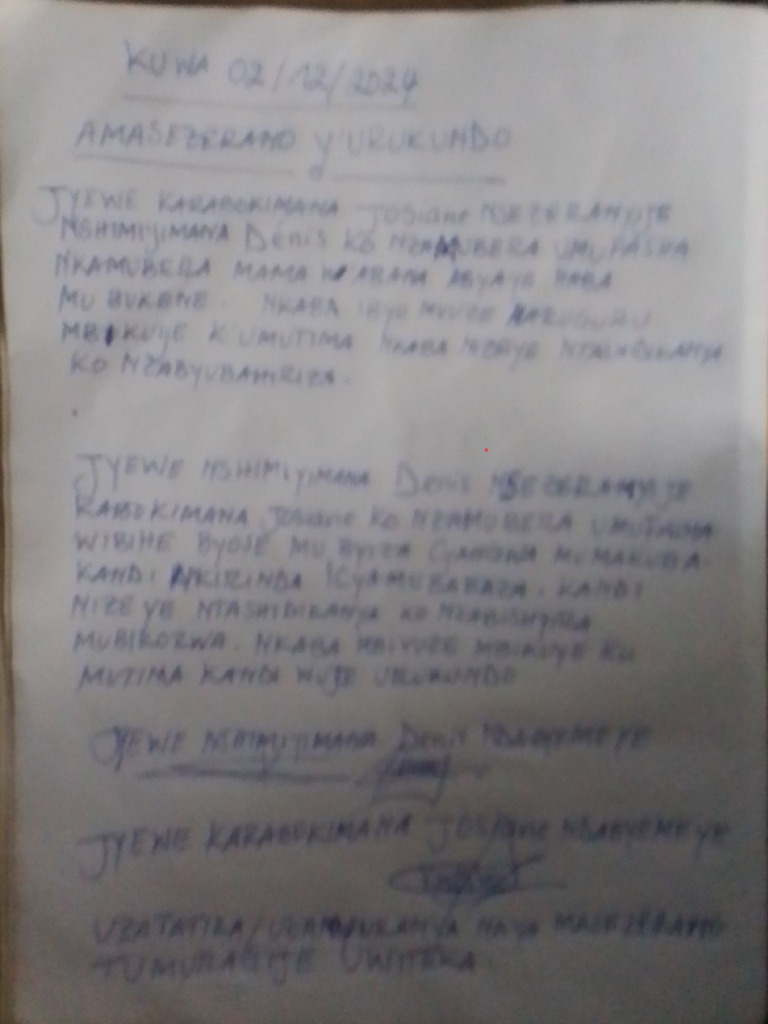 KUWA 02/12/2024
AMASEZERANO Y'URUKUNDO
JYEWE KARABOKIMANA Josiane NSEZERANYIJE
NSHIMIYIMANA Dénis KO NZAMUBERA UMUPASHA
NKAMUBERA MAMA W'ABANA ABYAYE
MU BUKENE. NKABA IBYO MVUZE HARUGURU
MBIKUYE K'UMUTIMA NKABA NIZEYE NTASHIDIKANYA
KO NZABYUBAHIRIZA.
JYEWE NSHIMIYIMANA Denis NSEZERANYIJE
KARABOKIMANA Josiane KO NZAMUBERA
WIBIHE BYOSE MU BYIZA CYANGWA MUMAKUBA.
KANDI NKIRINDA ICYAMUBABAZA. KANDI
NIZEYE NTASHIDIKANYA KO NZABISHYIRA
MUBIKORWA. NKABA MBIVUZE MBIKUYE KU
MUTIMA KANDI WUJE URUKUNDO
JYEWE NSHIMIYIMANA Denis NDABYEMEYE
JYEWE KARABOKIMANA JOSIANE NDABYEMEYE
UZATATIRA/ AYA MASEZERANO
TUMURAGIJE UWITEKA.